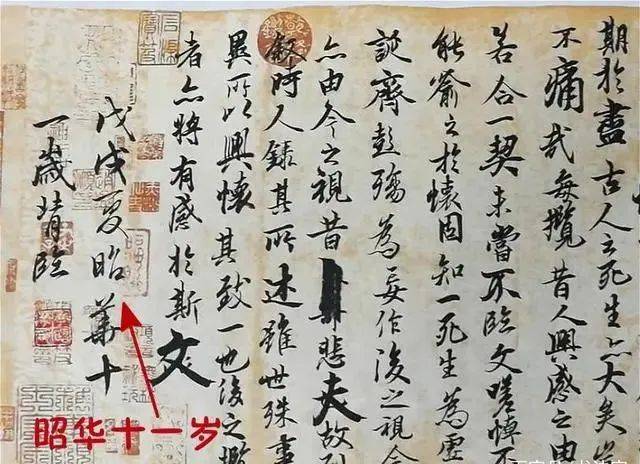 期於盡古人云死生亦大矣豈
不痛哉每攬昔人興感之由
若合一契未嘗不臨文嗟悼不
能喻之於懷固知一死生為虛
誕齊彭殤為妄作後之視今
亦由今之視昔悲夫故列
敘時人錄其所述雖世殊事
異所以興懷其致一也後之攬
者亦將有感於斯文
戊戌夏昭華十
一歲靖臨
昭华十一岁